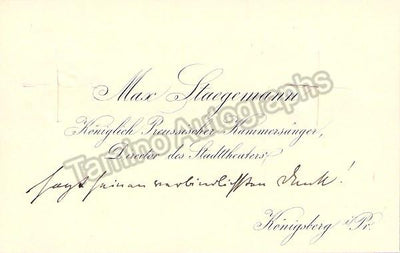 Max Staegemann
Königlich Preussischer Kammersänger,
Director des Stadttheaters,
sagt seinen verbindlichsten Dank!
Königsberg i/Pr.
Tamino Autographs